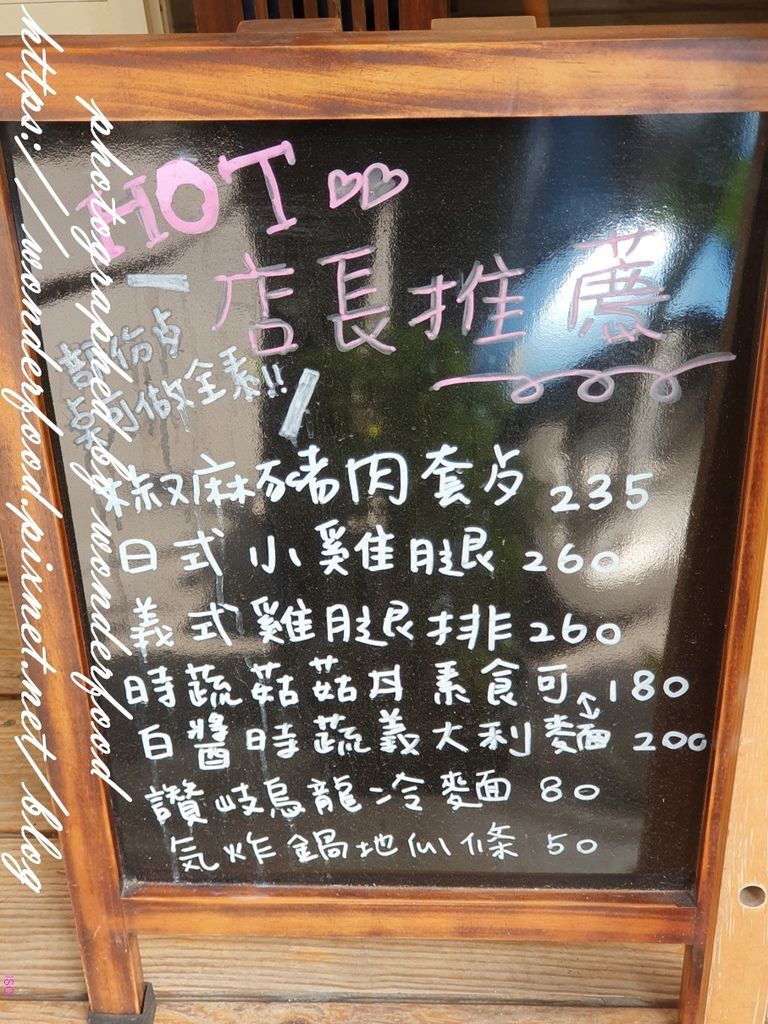 HOT
店長推薦
部份点
桌可做全素!!
椒麻豬肉套点 235
日式小雞腿 260
義式雞腿排 260
時蔬菇菇丼 素食可 180
白醬時蔬義大利麵 200
讚岐烏龍冷麵 80
気炸鍋地瓜條 50
photographed by wonderfood
https://wonderfood.pixnet.net/blog